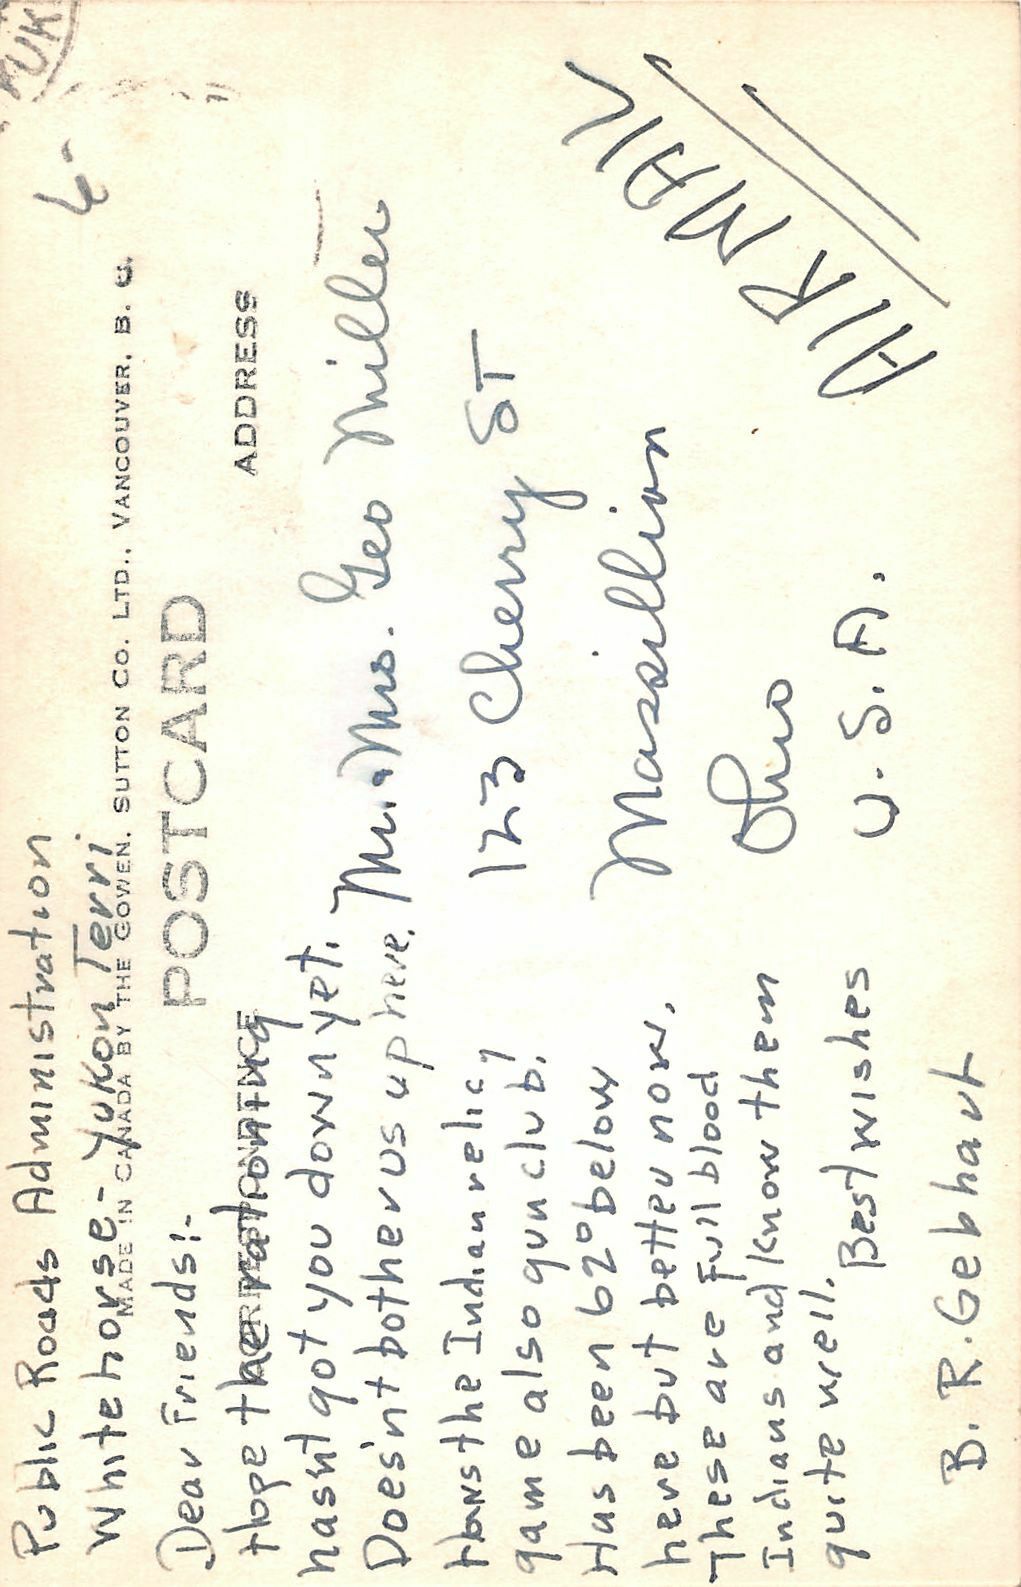 Public Roads Administration
Whitehorse - Yukon Terri
MADE IN CANADA BY THE GOWEN, SUTTON CO. LTD., VANCOUVER, B. C.
POSTCARD
CORRESPONDENCE
ADDRESS
Dear Friends:-
Hope the rationing
hasn't got you down yet.
Does'nt bother us up here.
Hows the Indian relic
game also gun club!
Has been 62° below
here but better now.
These are Full blood
Indians and know them
quite well.
Best wishes
B. R. Gebhart
Mr. & Mrs. Geo Miller
123 Cherry ST
Massillion
Ohio
U. S. A.
AIR MAIL
YUK